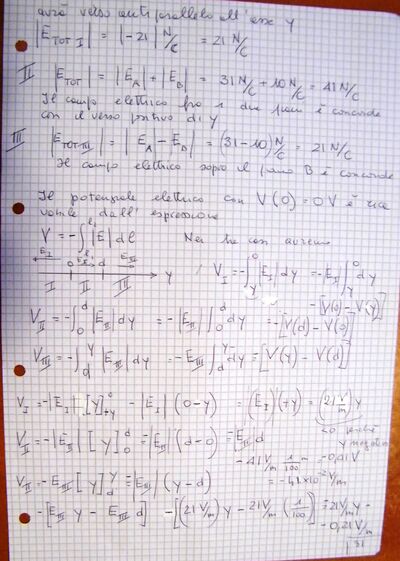 avrà verso antiparallelo all'asse Y
|E_TOT I| = |-21| N/C = 21 N/C
II |E_TOT| = |E_A| + |E_B| = 31 N/C + 10 N/C = 41 N/C
Il campo elettrico fra i due piani è concorde
con il verso positivo di Y
III |E_TOT III| = |E_A - E_B| = (31-10) N/C = 21 N/C
Il campo elettrico sopra il piano B è concorde
Il potenziale elettrico con V(0) = 0V è rica
vabile dall'espressione
V = -∫|E|dl Nei tre casi avremo
E_I E_II E_III
0 d Y
I II III
V_I = -∫_Y^0 |E_I| dy = -|E_I| ∫_Y^0 dy
= -[V(0) - V(Y)]
V_II = -∫_0^d |E_II| dy = -|E_II| ∫_0^d dy = -[V(d) - V(0)]
V_III = -∫_d^Y |E_III| dy = -E_III ∫_d^Y dy = [V(Y) - V(d)]
V_I = -|E_I| [Y]_+Y^0 - |E_I| (0-y) = (E_I)(+y) = (21 V/m) y
<0 perché
y negativo
V_II = -|E_II| [Y]_0^d = -|E_II| (d-0) = -E_II d
-41 V/m 1/100 m = -0,41V
= -41×10^-2 V/m
V_III = -E_III [Y]_d^Y = -|E_III| (y-d)
-[E_III y - E_III d] -[(21 V/m) y - 21 V/m (1/100)] = 21 V/m y
- 0,21 V/m
31